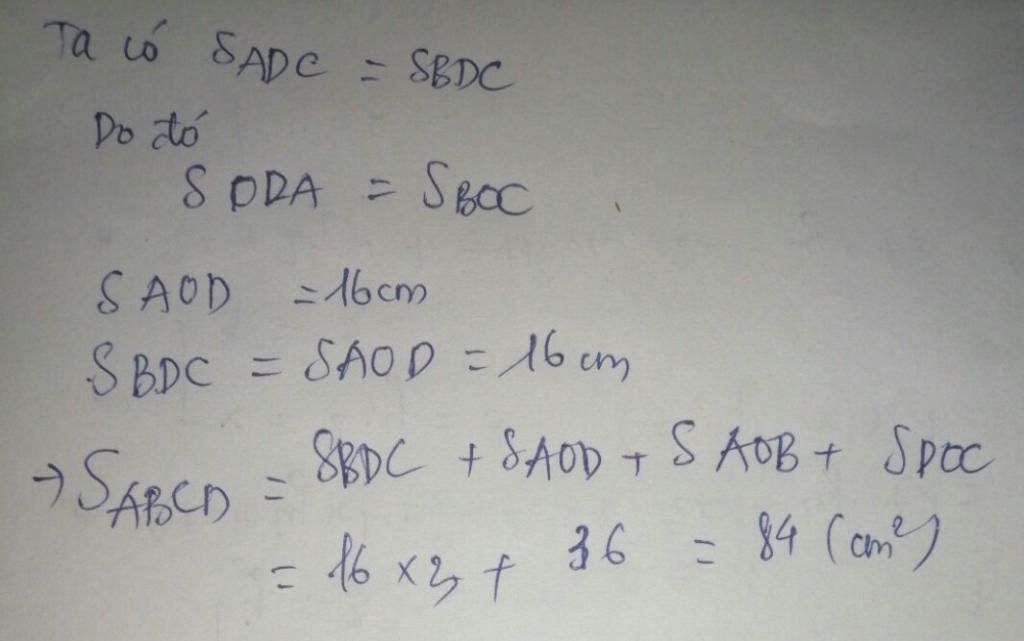 Ta có SADC = SBDC
Do đó
SODA = SBOC
SAOD = 16cm
SBDC = SAOD = 16cm
→ SABCD = SBDC + SAOD + SAOB + SDOC
= 16 x 3 + 36 = 84 (cm²)